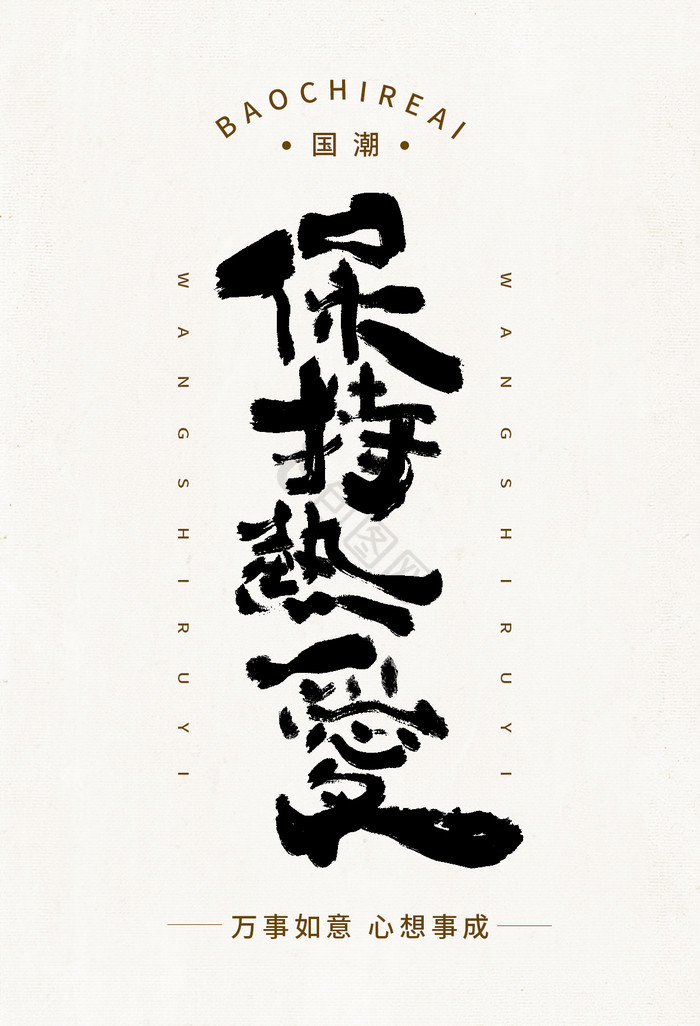 BAOCHIREAI
• 国潮 •
保持熱愛
WANGSHIRUYI
WANGSHIRUYI
万事如意 心想事成